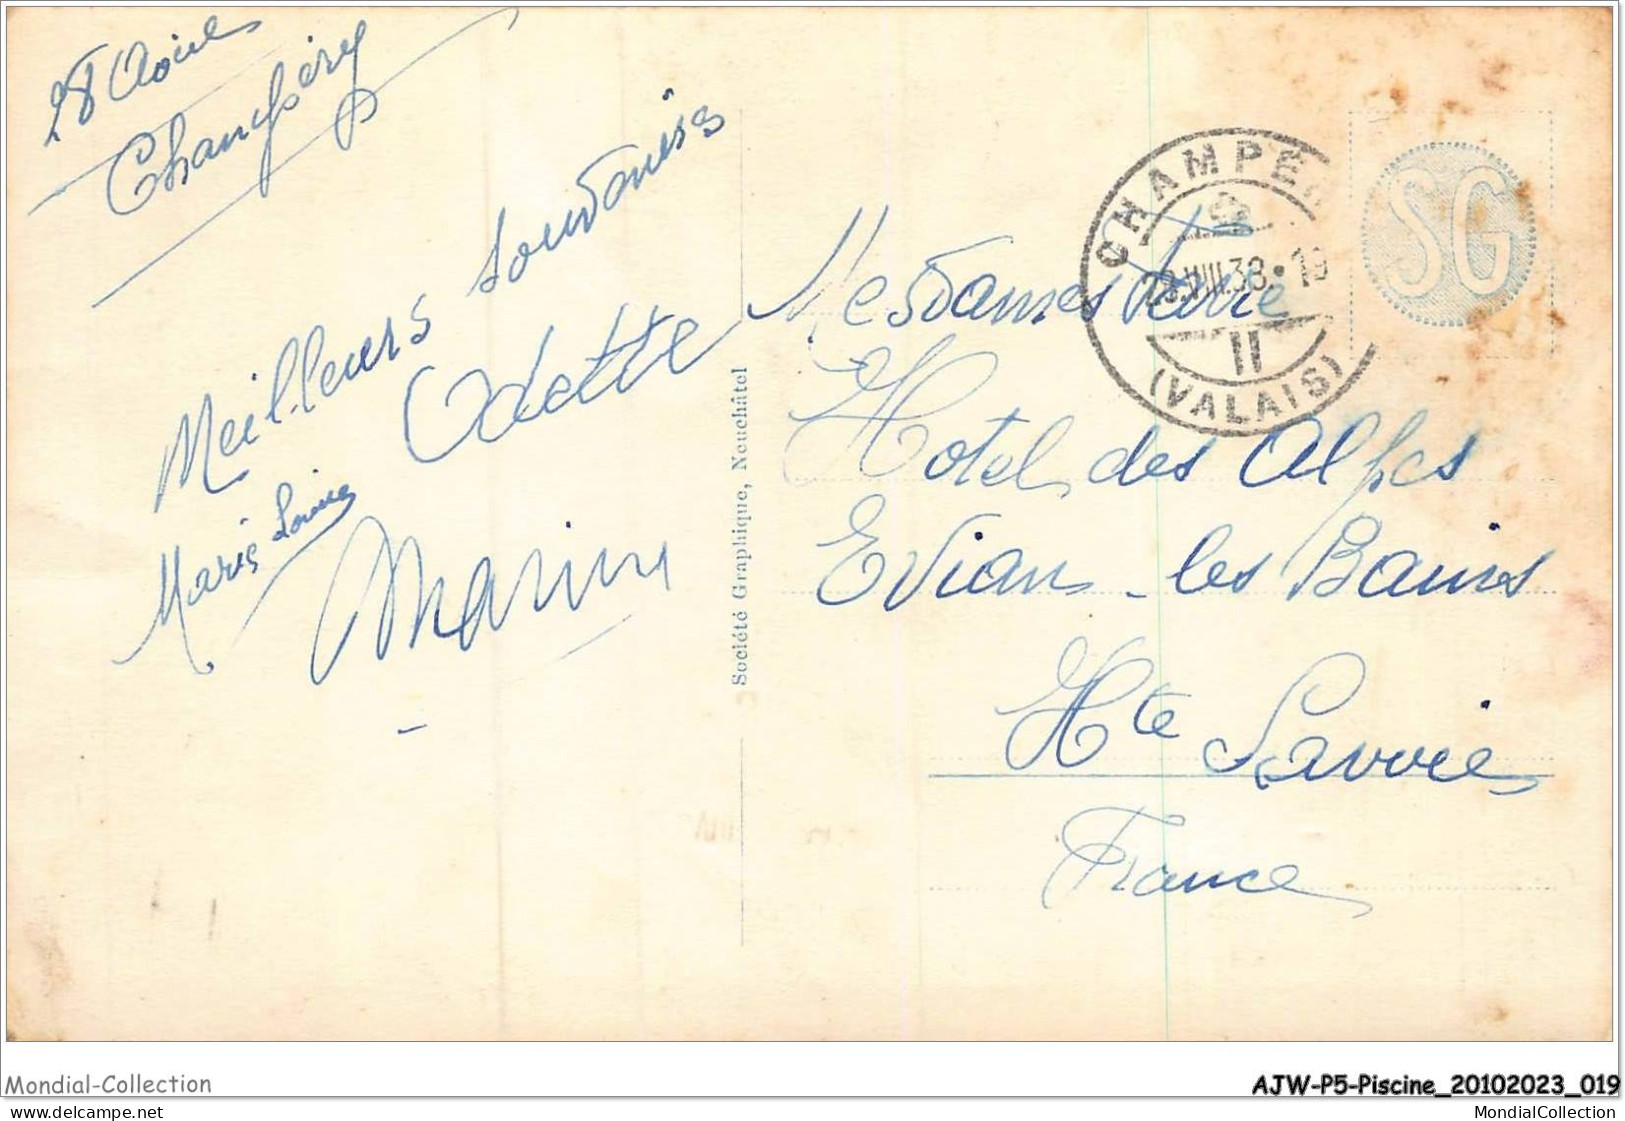 28 Août
Champéry
Meilleurs souvenirs
Odette
Marie Louise
Société Graphique, Neuchâtel
CHAMPÉ
28.VIII.38.19
II
(VALAIS)
SG
Mesdames
Hotel des Alpes
Evian-les Bains
Hte Savoie
France
Mondial-Collection
AJW-P5-Piscine_20102023_019
MondialCollection